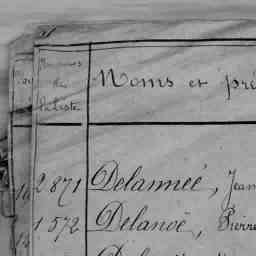 Numéros
de
la liste
Noms et pré
2871 Delanneé, Jean
1572 Delanoë, Pierre